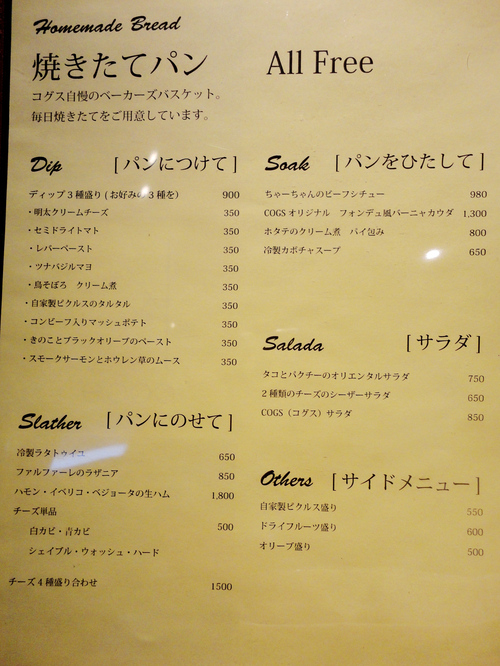 Homemade Bread
焼きたてパン All Free
コグス自慢のベーカーズバスケット。
毎日焼きたてをご用意しています。
Dip [パンにつけて]
ディップ3種盛り(お好みの3種を) 900
・明太クリームチーズ 350
・セミドライトマト 350
・レバーペースト 350
・ツナバジルマヨ 350
・鳥そぼろ クリーム煮 350
・自家製ピクルスのタルタル 350
・コンビーフ入りマッシュポテト 350
・きのことブラックオリーブのペースト 350
・スモークサーモンとホウレン草のムース 350
Slather [パンにのせて]
冷製ラタトゥイユ 650
ファルファーレのラザニア 850
ハモン・イベリコ・ベジョータの生ハム 1,800
チーズ単品
白カビ・青カビ 500
シェイブル・ウォッシュ・ハード
チーズ4種盛り合わせ 1500
Soak [パンをひたして]
ちゃーちゃんのビーフシチュー 980
COGSオリジナル フォンデュ風バーニャカウダ 1,300
ホタテのクリーム煮 パイ包み 800
冷製カボチャスープ 650
Salada [サラダ]
タコとパクチーのオリエンタルサラダ 750
2種類のチーズのシーザーサラダ 650
COGS(コグス)サラダ 850
Others [サイドメニュー]
自家製ピクルス盛り 550
ドライフルーツ盛り 600
オリーブ盛り 500